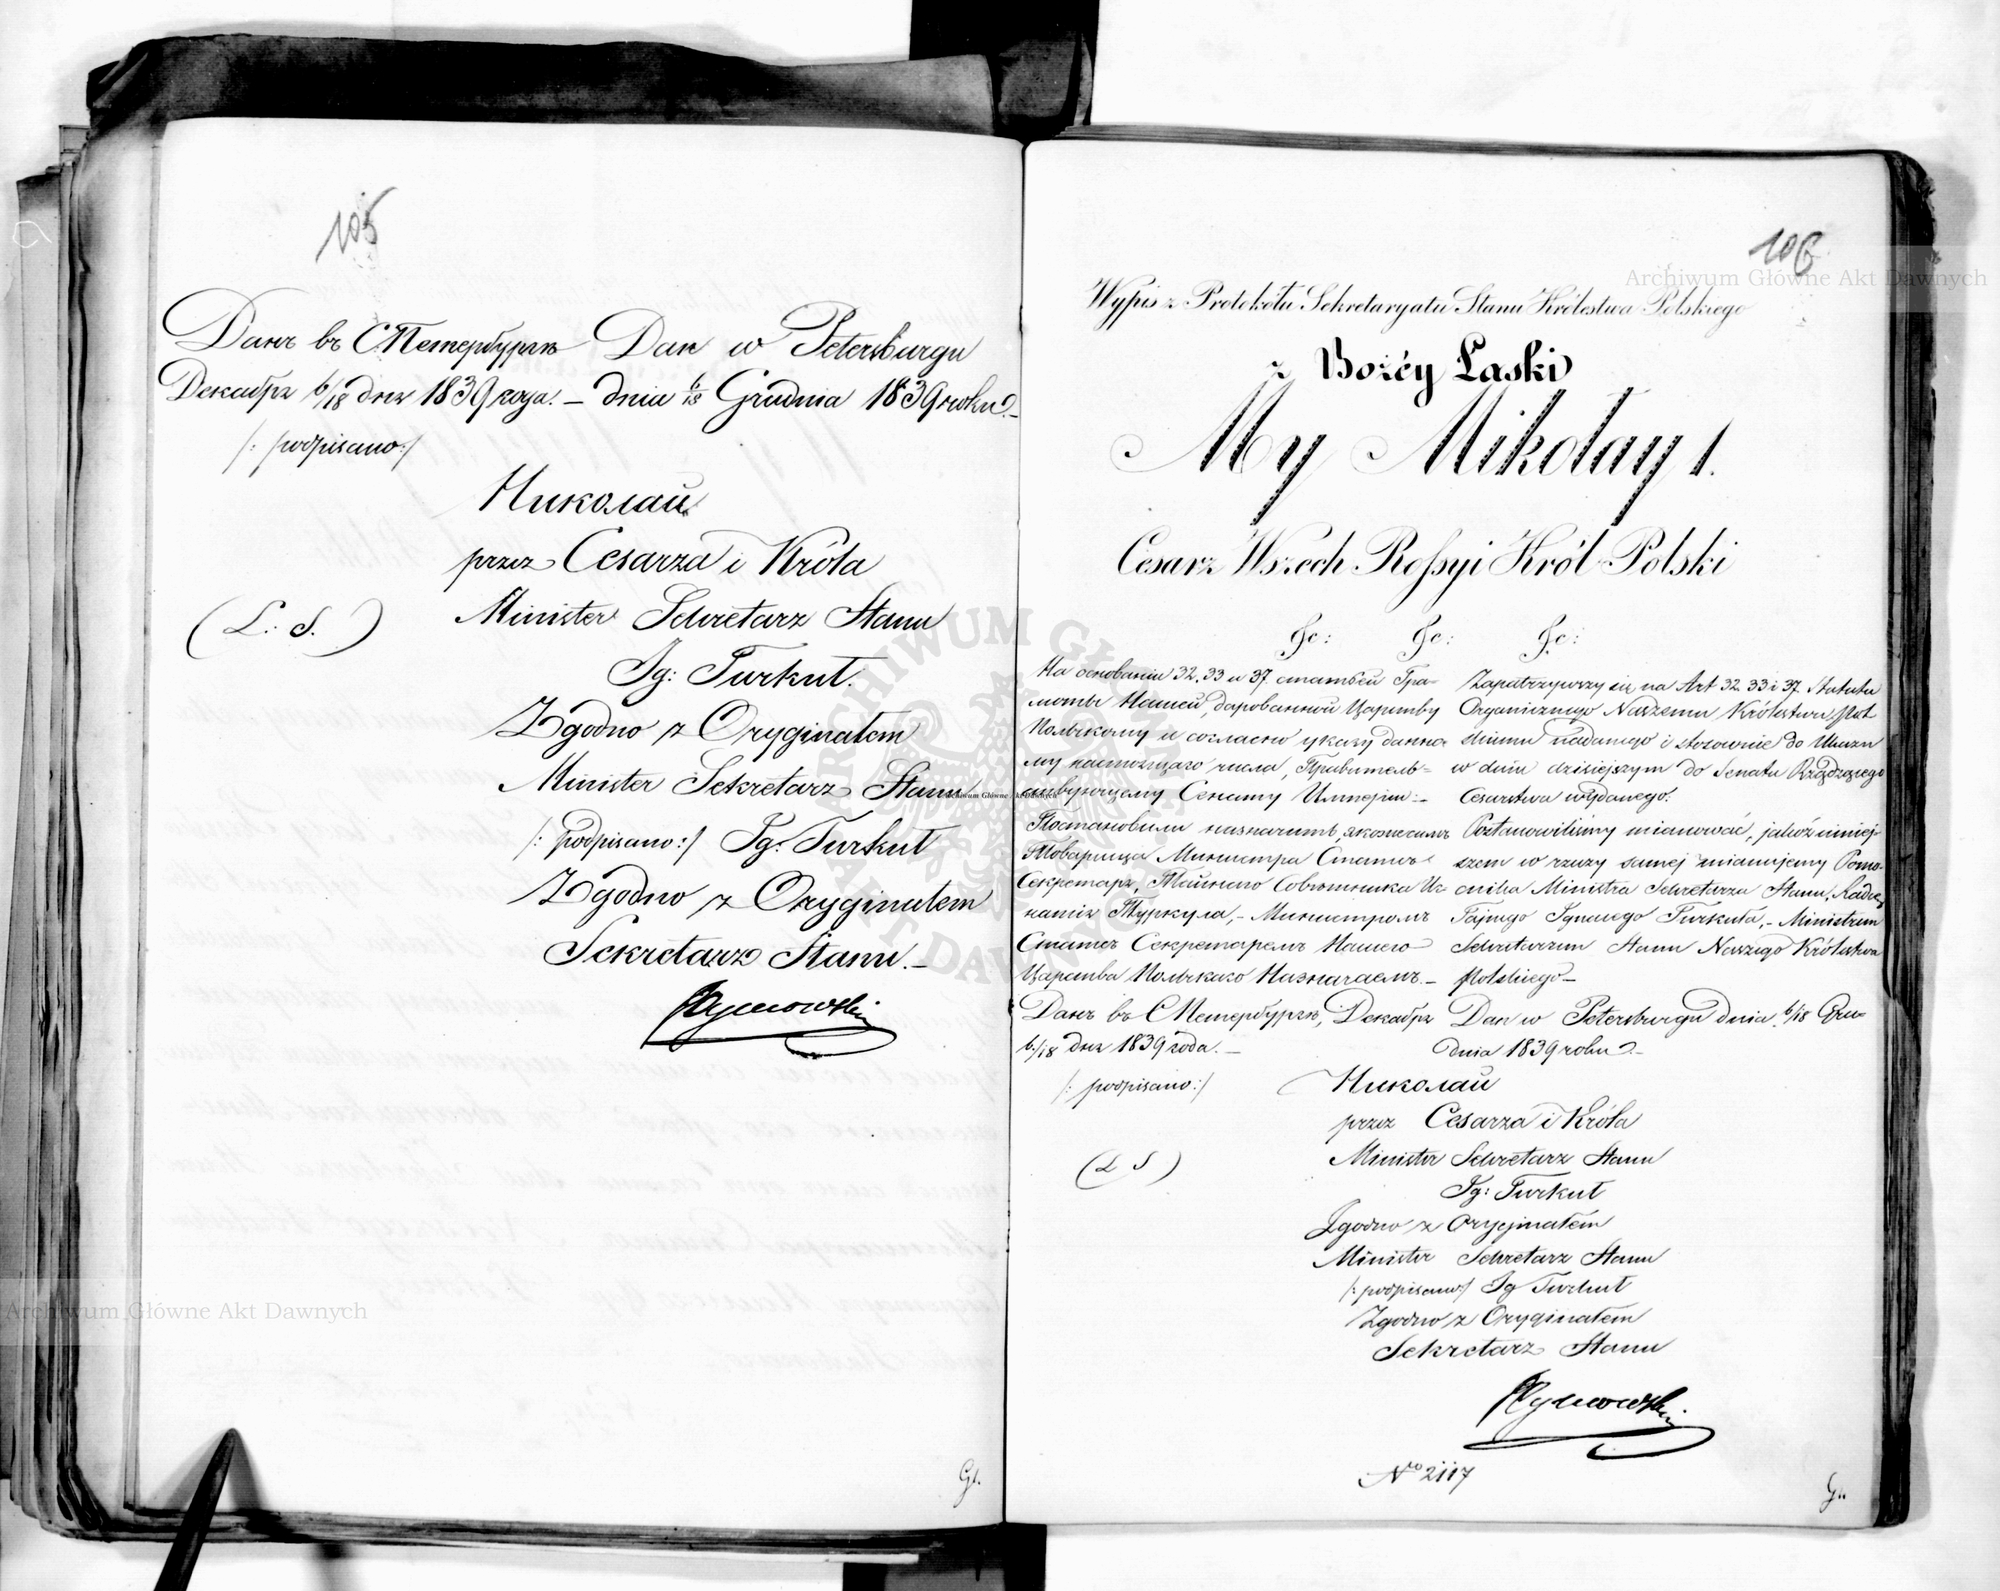 105
Данъ въ СПетербургѣ
Декабря 6/18 дня 1839 года. –
Dan w Petersburgu
dnia 6/18 Grudnia 1839 roku. –
/: podpisano :/
Николай
przez Cesarza i Króla
Minister Sekretarz Stanu
(L. S.)
Ig: Turkuł.
Zgodno z Oryginałem
Minister Sekretarz Stanu
/: podpisano :/ Ig. Turkuł
Zgodno z Oryginałem
Sekretarz Stanu. –
Hymowski
Gł.
106
Wypis z Protokółu Sekretaryatu Stanu Królestwa Polskiego
z Bożéy Łaski
My Mikołay 1.
Cesarz Wszech Rossyi Król Polski
&c: &c: &c:
На основаніи 32. 33 и 37. статьей Гра-
моты Нашей, дарованной Царству
Польскому и согласно указу данно
му настоящаго числа, Правитель-
ствующему Сенату Имперіи: –
Постановили назначить, якоже симъ
Товарища Министра Статсъ
Секретаря, Тайнаго Совѣтника Иг
натія Туркула, – Министромъ
Статсъ Секретаремъ Нашего
Царства Польскаго Назначаемъ. –
Данъ въ СПетербургѣ, Декабря
6/18 дня 1839 года. –
Zapatrzywszy się na Art 32. 33 i 37. Statutu
Organicznego Naszemu Królestwu Pol
skiemu nadanego i stosownie do Ukazu
w dniu dzisiejszym do Senatu Rządzącego
Cesarstwa wydanego:
Postanowiliśmy mianować, jakóż niniej-
szem w rzeczy samej mianujemy Pomo-
cnika Ministra Sekretarza Stanu, Radcę
Tajnego Ignacego Turkuła, – Ministrem
Sekretarzem Stanu Naszego Królestwa
Polskiego –
Dan w Petersburgu dnia 6/18 Gru-
dnia 1839 roku. –
/: podpisano :/
Николай
przez Cesarza i Króla
Minister Sekretarz Stanu
(L S)
Ig: Turkuł
Zgodno z Oryginałem
Minister Sekretarz Stanu
/: podpisano :/ Ig Turkuł
Zgodno z Oryginałem
Sekretarz Stanu
Hymowski
No 2117
Gł.
Archiwum Główne Akt Dawnych
Archiwum Główne Akt Dawnych
Archiwum Główne Akt Dawnych
ARCHIWUM GŁÓWNE AKT DAWNYCH